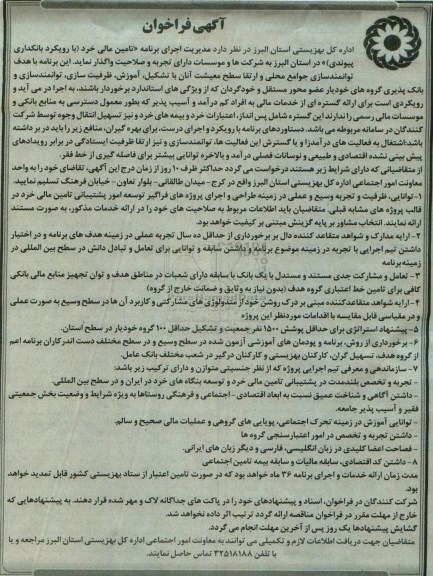 آگهی فراخوان
اداره کل بهزیستی استان البرز در نظر دارد مدیریت اجرای برنامه «تامین مالی خرد (با رویکرد بانکداری
پیوندی)» در استان البرز به شرکت ها و موسسات دارای تجربه و صلاحیت واگذار نماید. این برنامه با هدف
توانمندسازی جوامع محلی و ارتقا سطح معیشت آنان با تشکیل، آموزش، ظرفیت سازی، توانمندسازی و
بانک پذیری گروه های خودیار عضو محور مستقل و خودگردان که از ویژگی های استاندارد برخوردار باشند، به اجرا در می آید و
رویکردی است برای ارائه گستره ای از خدمات مالی به افراد کم درآمد و آسیب پذیر که بطور معمول دسترسی به منابع بانکی و
موسسات مالی رسمی را ندارند این گستره شامل پس انداز، اعتبارات خرد و بیمه های خرد و نیز تسهیل انتقال وجوه توسط شرکت
کنندگان در سامانه مربوطه می باشد. دستاوردهای برنامه با رویکرد و اجرای درست، برای بهره گیران، منافع زیر را باید در بر داشته
باشد: اشتغال به فعالیت های درآمدزا و یا گسترش این فعالیت ها، توانمندسازی و نیز ارتقا ظرفیت ایستادگی در برابر رویدادهای
پیش بینی نشده اقتصادی و طبیعی و نوسانات فصلی درآمد و بالاخره توانایی بیشتر برای فاصله گیری از خط فقر.
از متقاضیانی که دارای شرایط زیر هستند درخواست می گردد حداکثر ظرف ۱۰ روز از زمان درج این آگهی، تقاضای خود را به واحد
معاونت امور اجتماعی اداره کل بهزیستی استان البرز واقع در کرج - میدان طالقانی- بلوار تعاون - خیابان فرهنگ تسلیم نمایید.
۱- توانایی، ظرفیت و تجربه وسیع و عملی در زمینه طراحی و اجرای پروژه های فراگیر توسعه امور پشتیبانی تامین مالی خرد در
قالب پروژه های مشابه قبلی. متقاضیان باید اطلاعات مربوط به صلاحیت های خود را در ارائه خدمات مذکور، به صورت مستند
ارائه نمایند. انتخاب مشاور بر پایه گزینش مبتنی بر کیفیت خواهد بود.
۲- ارایه مدارک و شواهد متقاعد کننده دال بر برخورداری از حداقل ده سال تجربه عملی در زمینه هدف های برنامه و در اختیار
داشتن تیم اجرایی با تجربه در زمینه موضوع برنامه و داشتن سابقه و توانایی برای تعامل و تبادل دانش در سطح بین المللی در
زمینه برنامه
۳- تعامل و مشارکت جدی مستند و مستدل با یک بانک با سابقه دارای شعبات در مناطق هدف و توان تجهیز منابع مالی بانکی
کافی برای تامین خط اعتباری گروه هدف (بدون نیاز به وثایق و ضمانت خارج از گروه)
۴- ارایه شواهد متقاعدکننده مبنی بر درک روشن خود از متدولوژی های مشارکتی و کاربرد آن ها در سطح وسیع به صورت عملی
و در مقیاسی قابل مقایسه با اقدامات موردنظر این پروژه
۵- پیشنهاد استراتژی برای حداقل پوشش ۱۵۰۰ نفر جمعیت و تشکیل حداقل ۱۰۰ گروه خودیار در سطح استان.
۶- برخورداری از روش، برنامه و پودمان های آموزشی آزمون شده در سطح وسیع و در سطح مختلف دست اندرکاران برنامه اعم
از گروه هدف، تسهیل گران، کارکنان بهزیستی و کارکنان درگیر در شعب مختلف بانک عامل.
۷- سازماندهی و معرفی تیم اجرایی پروژه که از نظر جنسیتی متوازن و دارای ترکیب زیر باشد:
- تجربه و تخصص بلندمدت در پشتیبانی تامین مالی خرد و توسعه بنگاه های خرد در ایران و در سطح بین المللی.
- داشتن آگاهی و شناخت عمیق نسبت به ابعاد اقتصادی - اجتماعی و فرهنگی روستاها به ویژه شرایط و وضعیت بخش جمعیتی
فقیر و آسیب پذیر جامعه.
- توانایی آموزش در زمینه تحرک اجتماعی، پویایی های گروهی و عملیات مالی صحیح و سالم.
- داشتن تجربه و تخصص در امور اعتبارسنجی گروه ها
- فصاحت اعضا کلیدی در زبان انگلیسی، فارسی و دیگر زبان های ایرانی.
۸- داشتن کد اقتصادی، سابقه مالیات و سابقه بیمه تامین اجتماعی
مدت زمان ارائه خدمات و اجرای برنامه ۳۶ ماه خواهد بود که در صورت تامین اعتبار از ستاد بهزیستی کشور قابل تمدید خواهد
بود.
شرکت کنندگان در فراخوان، اسناد و پیشنهادهای خود را در پاکت های جداگانه لاک و مهر شده قرار دهند. به پیشنهادهایی که
خارج از مهلت مقرر در فراخوان مناقصه ارائه گردد ترتیب اثر داده نخواهد شد.
گشایش پیشنهادها یک روز پس از آخرین مهلت انجام می گردد.
متقاضیان جهت دریافت اطلاعات لازم و تکمیلی می توانند به معاونت امور اجتماعی اداره کل بهزیستی استان البرز مراجعه و یا
با تلفن ۳۲۵۱۸۱۸۸ تماس حاصل نمایند.